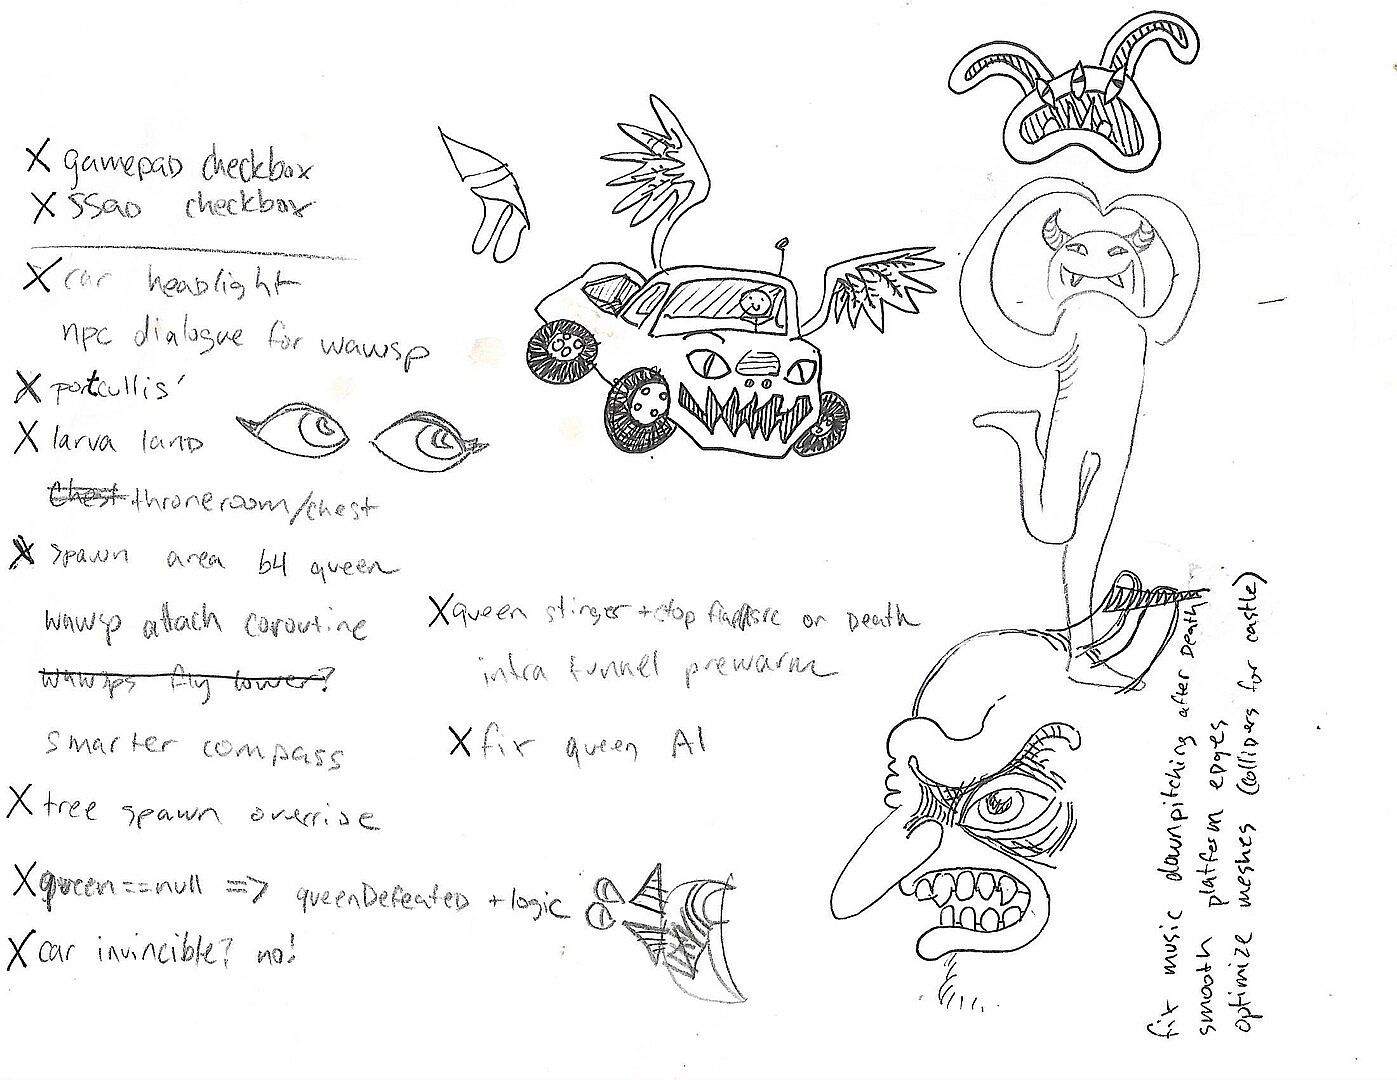 X gamepad checkbox
X SSAO checkbox
X car headlight
npc dialogue for wawsp
X portcullis
X larva land
chest throneroom/chest
X spawn area b4 queen
wawsp attach coroutine
wawsps fly lower?
smarter compass
X tree spawn override
X queen==null => queenDefeated + logic
X car invincible? no!
X queen stinger + stop on Death
intra tunnel prewarm
X fix queen AI
fix music downpitching after death
smooth platform edges
optimize meshes (colliders for castle)